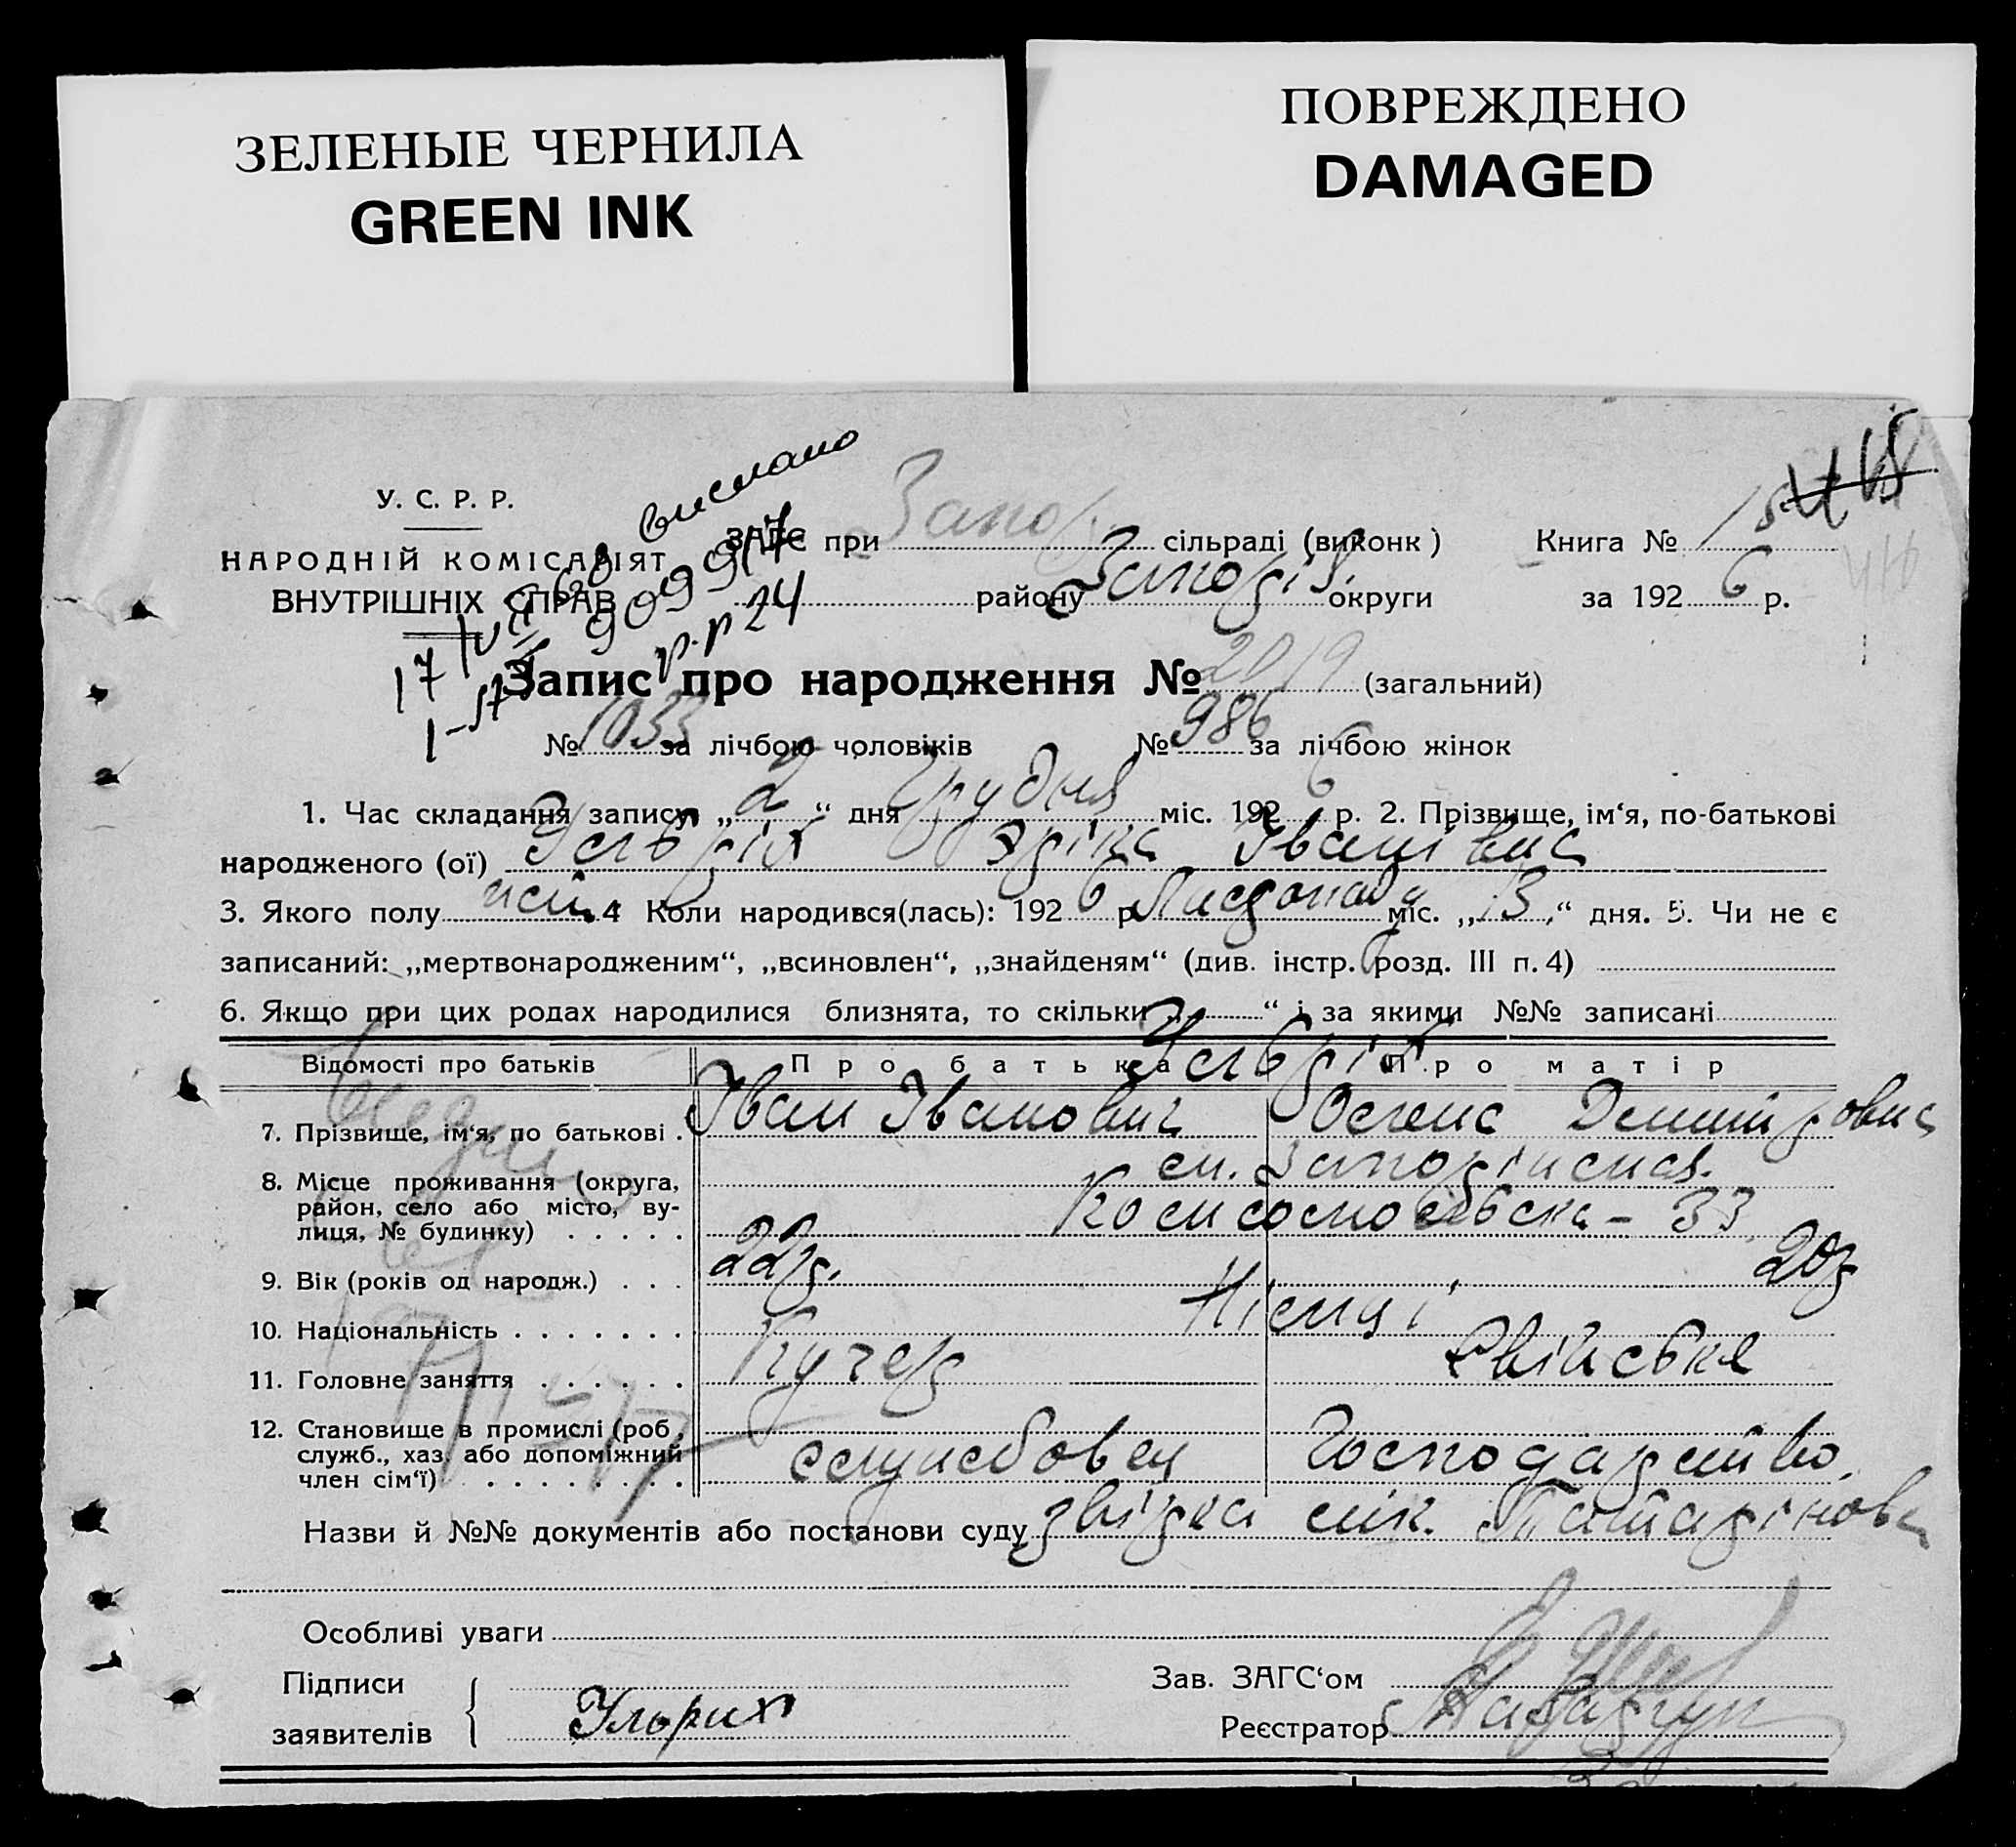 ЗЕЛЕНЫЕ ЧЕРНИЛА
GREEN INK
ПОВРЕЖДЕНО
DAMAGED
У. С. Р. Р.
НАРОДНІЙ КОМІСАРІЯТ
ВНУТРІШНІХ СПРАВ
выслано
ЗАГС при Запор сільраді (виконк)
району Запоріз. округи
Книга № 15
за 1926 р.
Запис про народження № 2019 (загальний)
№ 1033 за лічбою чоловіків № 986 за лічбою жінок
1. Час складання запису „2“ дня Грудня міс. 1926 р. 2. Прізвище, ім‘я, по-батькові
народженого (ої) Ульріх Эріка Іванівна
3. Якого полу жін. 4 Коли народився(лась): 1926 р. Листопада міс. „13“ дня. 5. Чи не є
записаний: „мертвонародженим“, „всиновлен“, „знайденям“ (див. інстр. розд. III п. 4)
6. Якщо при цих родах народилися близнята, то скільки „ “ і за якими №№ записані
Відомості про батьків Про батька Про матір
Ульріх
7. Прізвище, ім‘я, по батькові . Іван Іванович Олена
8. Місце проживання (округа, район, село або місто, вулиця, № будинку) . . . . . м. Запоріжжя.
Комсомольська - 33
9. Вік (років од народж.) . . . 22р. 20р
10. Національність . . . . . . . Німці
11. Головне заняття . . . . . . Кучер Хвійське
12. Становище в промислі (роб., служб., хаз. або допоміжний член сім‘ї) . . . . . . . . службовец Господарство.
Назви й №№ документів або постанови суду звідка лік. Татарінова
Особливі уваги
Підписи
заявителів
Ульрих
Зав. ЗАГС‘ом
Реєстратор